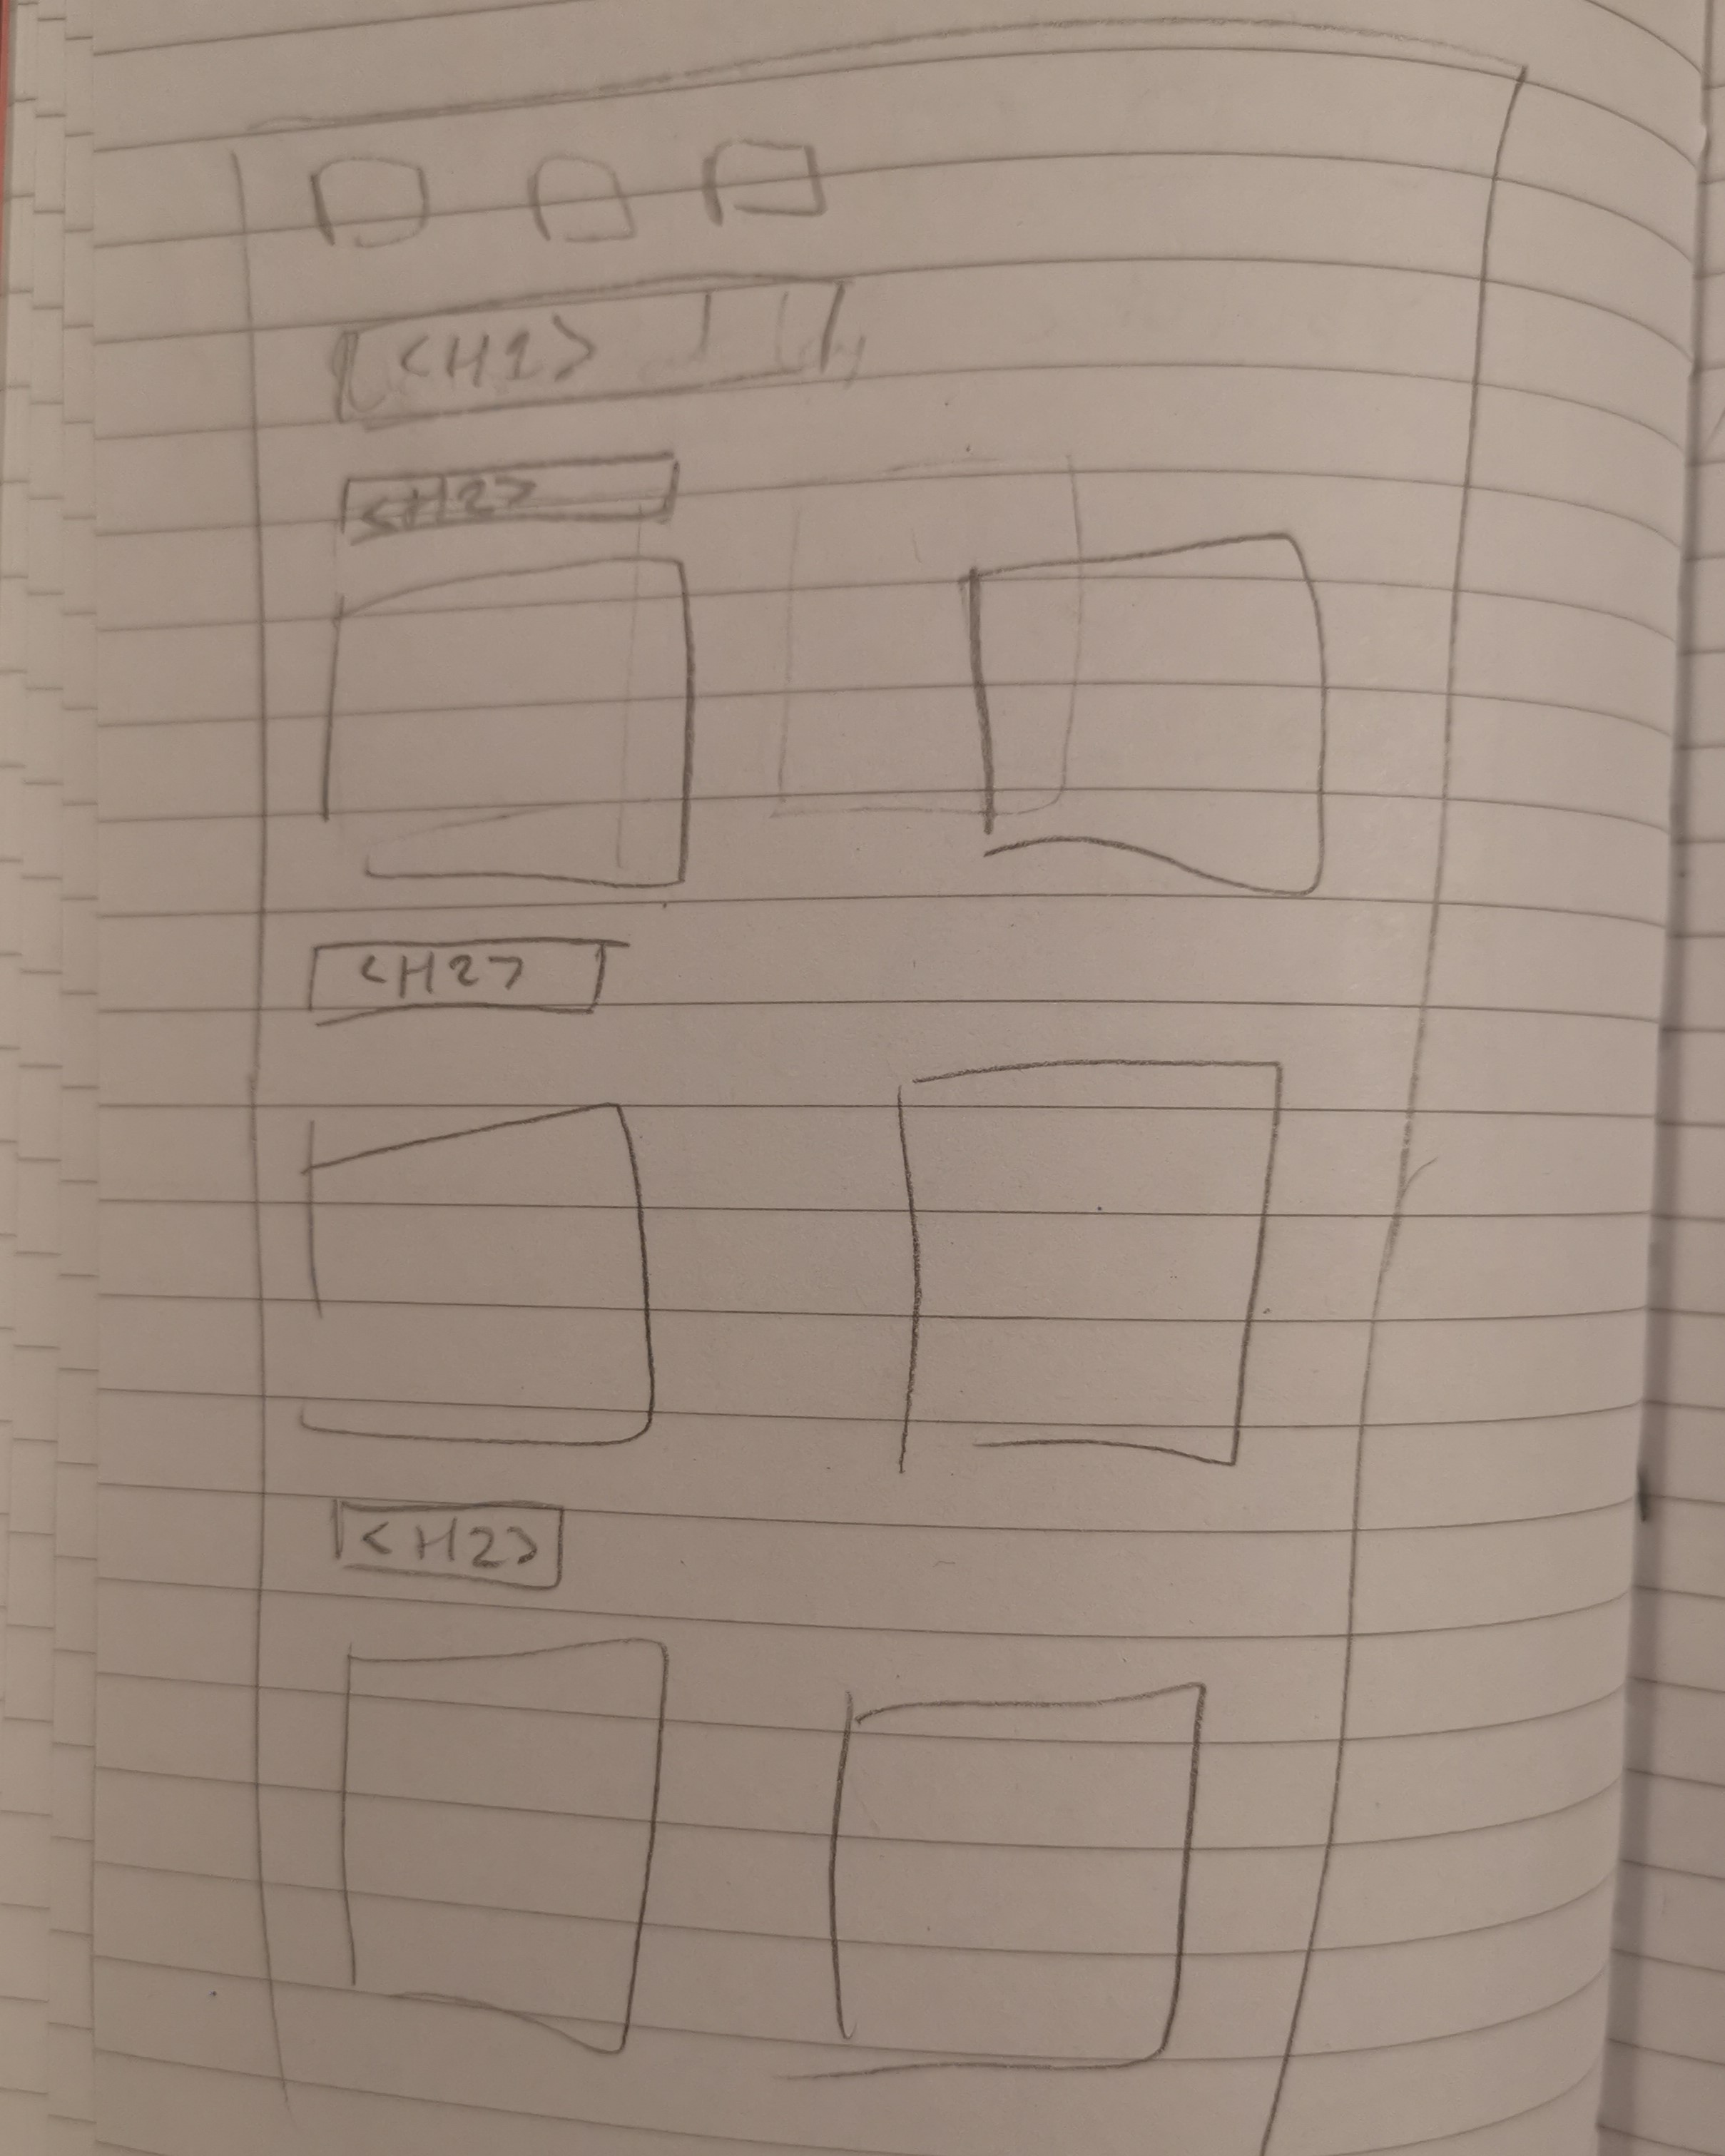 <H1>
<H2>
<H2>
<H2>